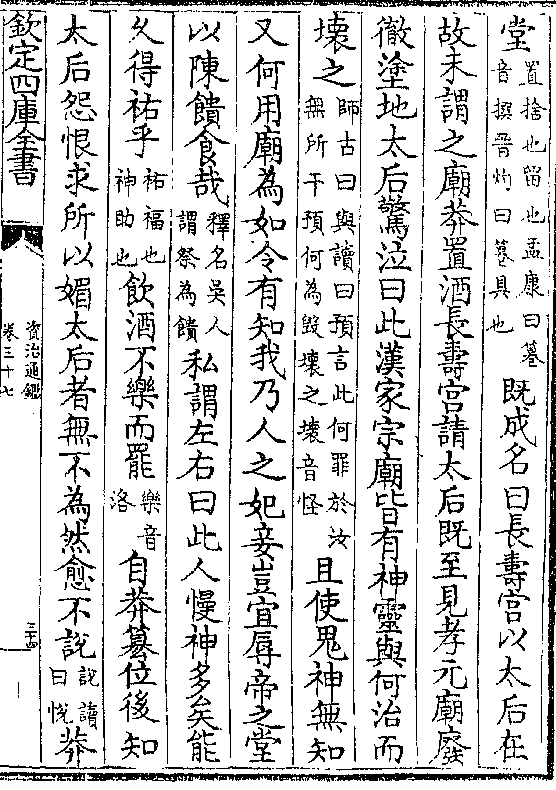 堂置捨也留也孟康曰篹音撰晉灼曰篹具也既成名曰長壽宮以太后在
故未謂之廟莽置酒長壽宮請太后既至見孝元廟廢
徹塗地太后驚泣曰此漢家宗廟皆有神靈與何治而
壞之師古曰與讀曰預言此何罪於汝無所干預何為毀壞之壞音怪且使鬼神無知
又何用廟為如令有知我乃人之妃妾豈宜辱帝之堂
以陳饋食哉釋名吳人謂祭為饋私謂左右曰此人慢神多矣能
乆得祐乎祐福也神助也飲酒不樂而罷樂音洛自莽簒位後知
太后怨恨求所以媚太后者無不為然愈不說說讀曰悅莽
欽定四庫全書
資治通鑑
卷三十七
三十四